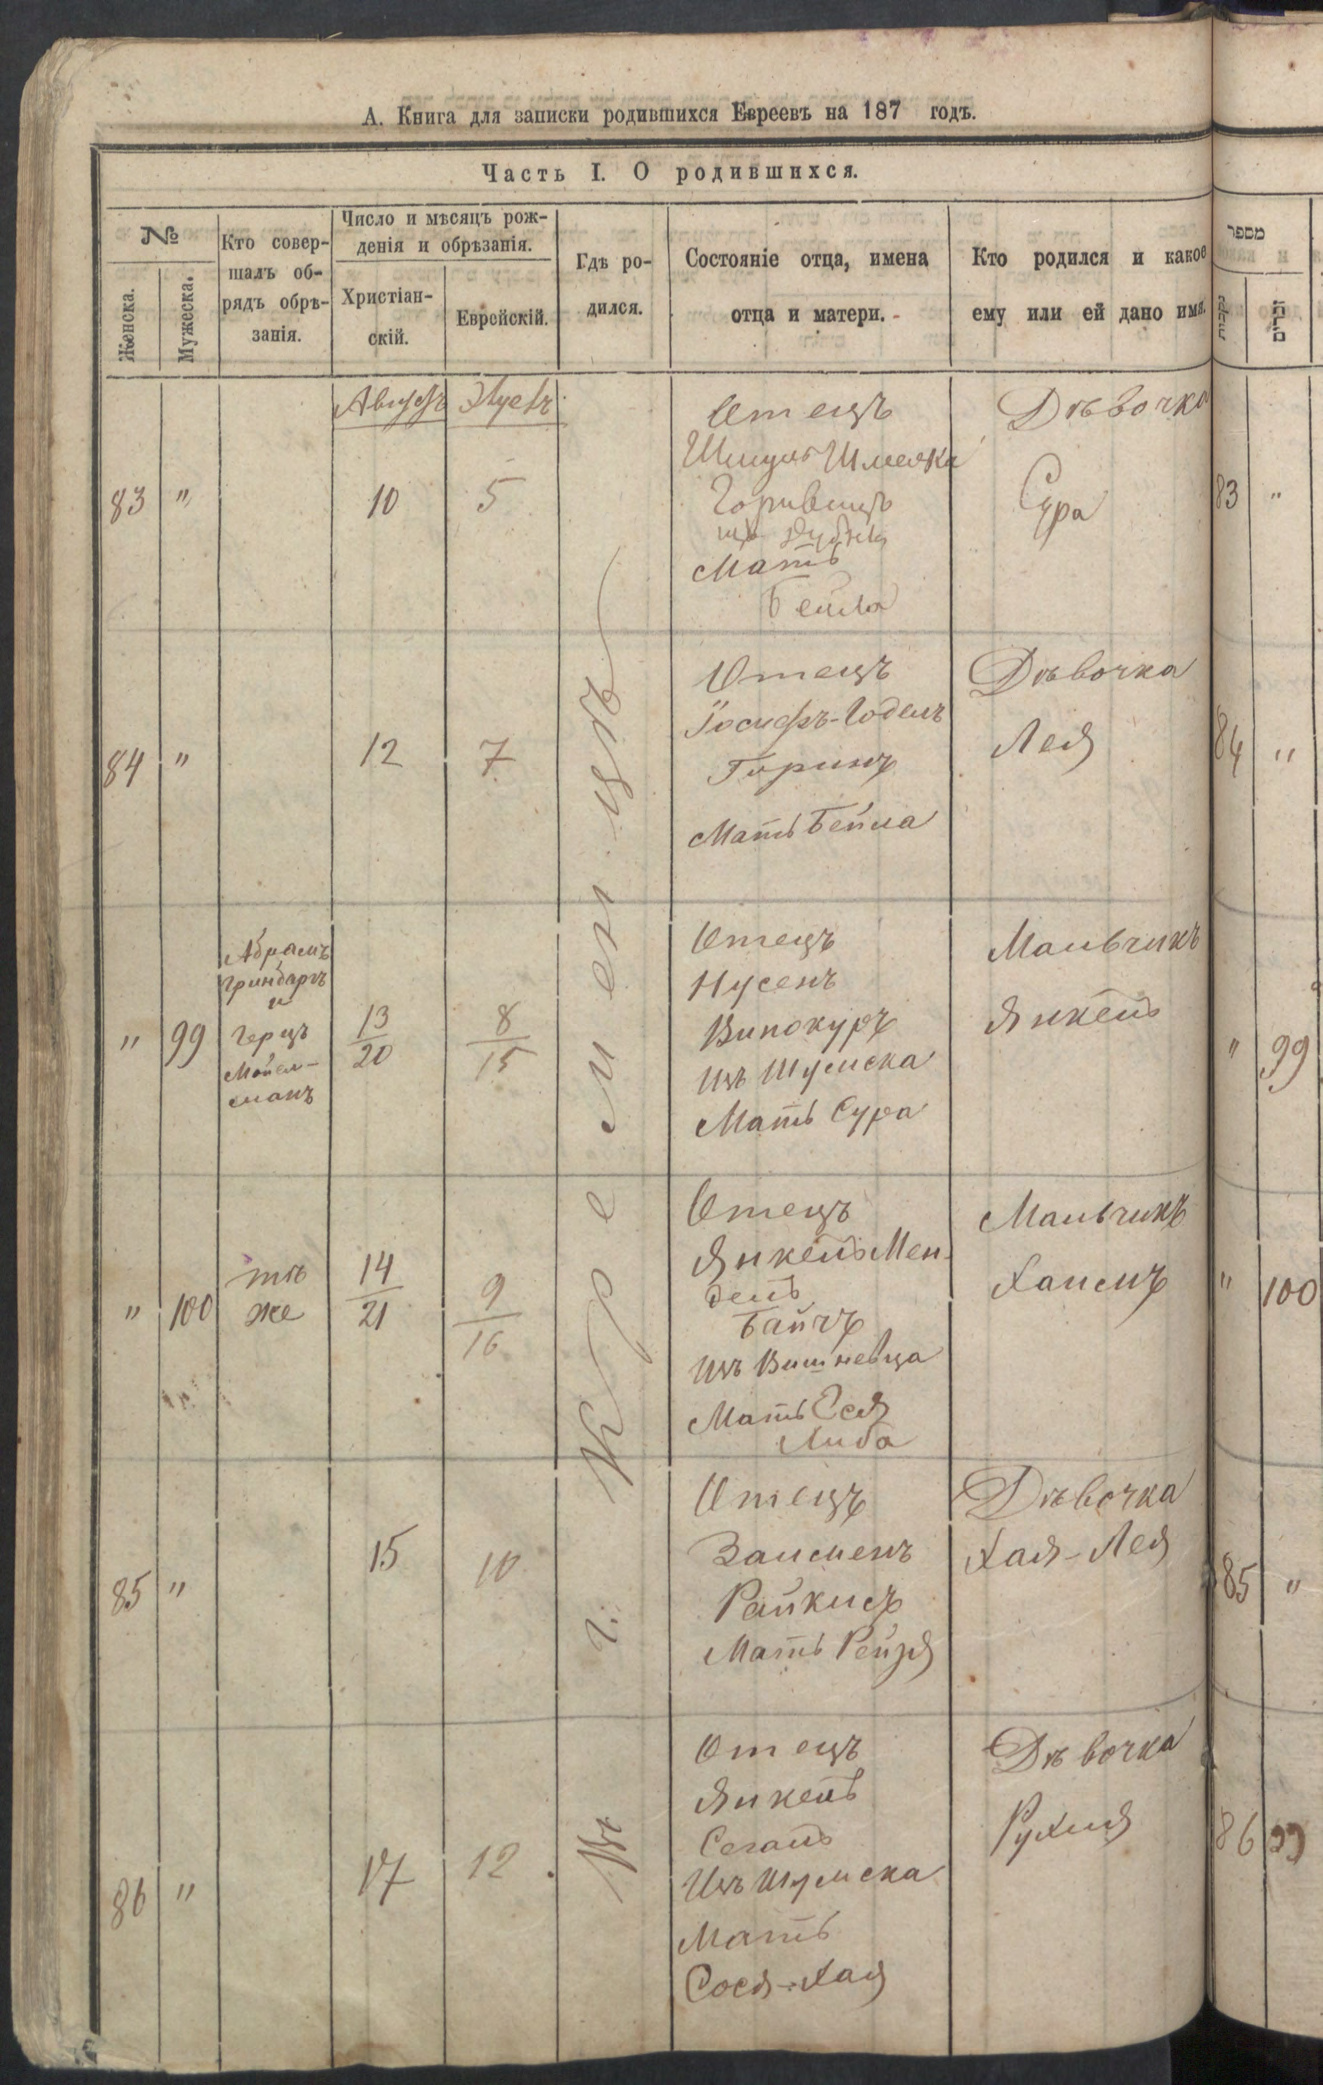 А. Книга для записки родившихся Евреевъ на 187 годъ.
Часть I. О родившихся.
№
Женска.
Мужеска.
Кто совер-
шалъ об-
рядъ обрѣ-
занія.
Число и мѣсяцъ рож-
денія и обрѣзанія.
Христіан-
скій.
Еврейскій.
Гдѣ ро-
дился.
Состояніе отца, имена
отца и матери.
Кто родился и какое
ему или ей дано имя.
מספר
נקבות
זכרים
Августъ Элуль
Въ г. Кременцѣ
83 "
10 5
Отецъ
Шмуль Шмелка
Горивицъ
изъ Дубна
Мать
Бейла
Дѣвочка
Сура
83 "
84 "
12 7
Отецъ
Іосифъ-Годель
Горинъ
Мать Бейла
Дѣвочка
Лея
84 "
" 99
Абрамъ
Гринбергъ
и
Герцъ
Мойсл-
манъ
13/20 8/15
Отецъ
Нусенъ
Винокуръ
Изъ Шумска
Мать Сура
Мальчикъ
Янкель
" 99
" 100
тѣ
же
14/21 9/16
Отецъ
Янкель Мен-
дель
Байчъ
Изъ Вишневца
Мать Еся
Либа
Мальчикъ
Хаимъ
" 100
85 "
15 10
Отецъ
Залменъ
Райкисъ
Мать Рейзя
Дѣвочка
Хая-Лея
85 "
86 "
17 12
Отецъ
Янкель
Сегаль
Изъ Шумска
Мать
Сося-Хая
Дѣвочка
Рухля
86 "